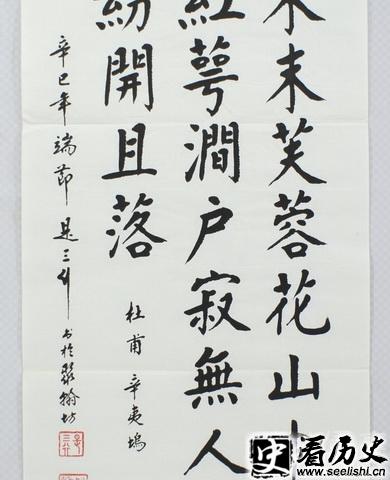 木末芙蓉花山
紅萼澗户寂無人
紛開且落
杜甫辛夷塢
辛巳年端節
书於翰坊
史看历史
www.seelishi.cn